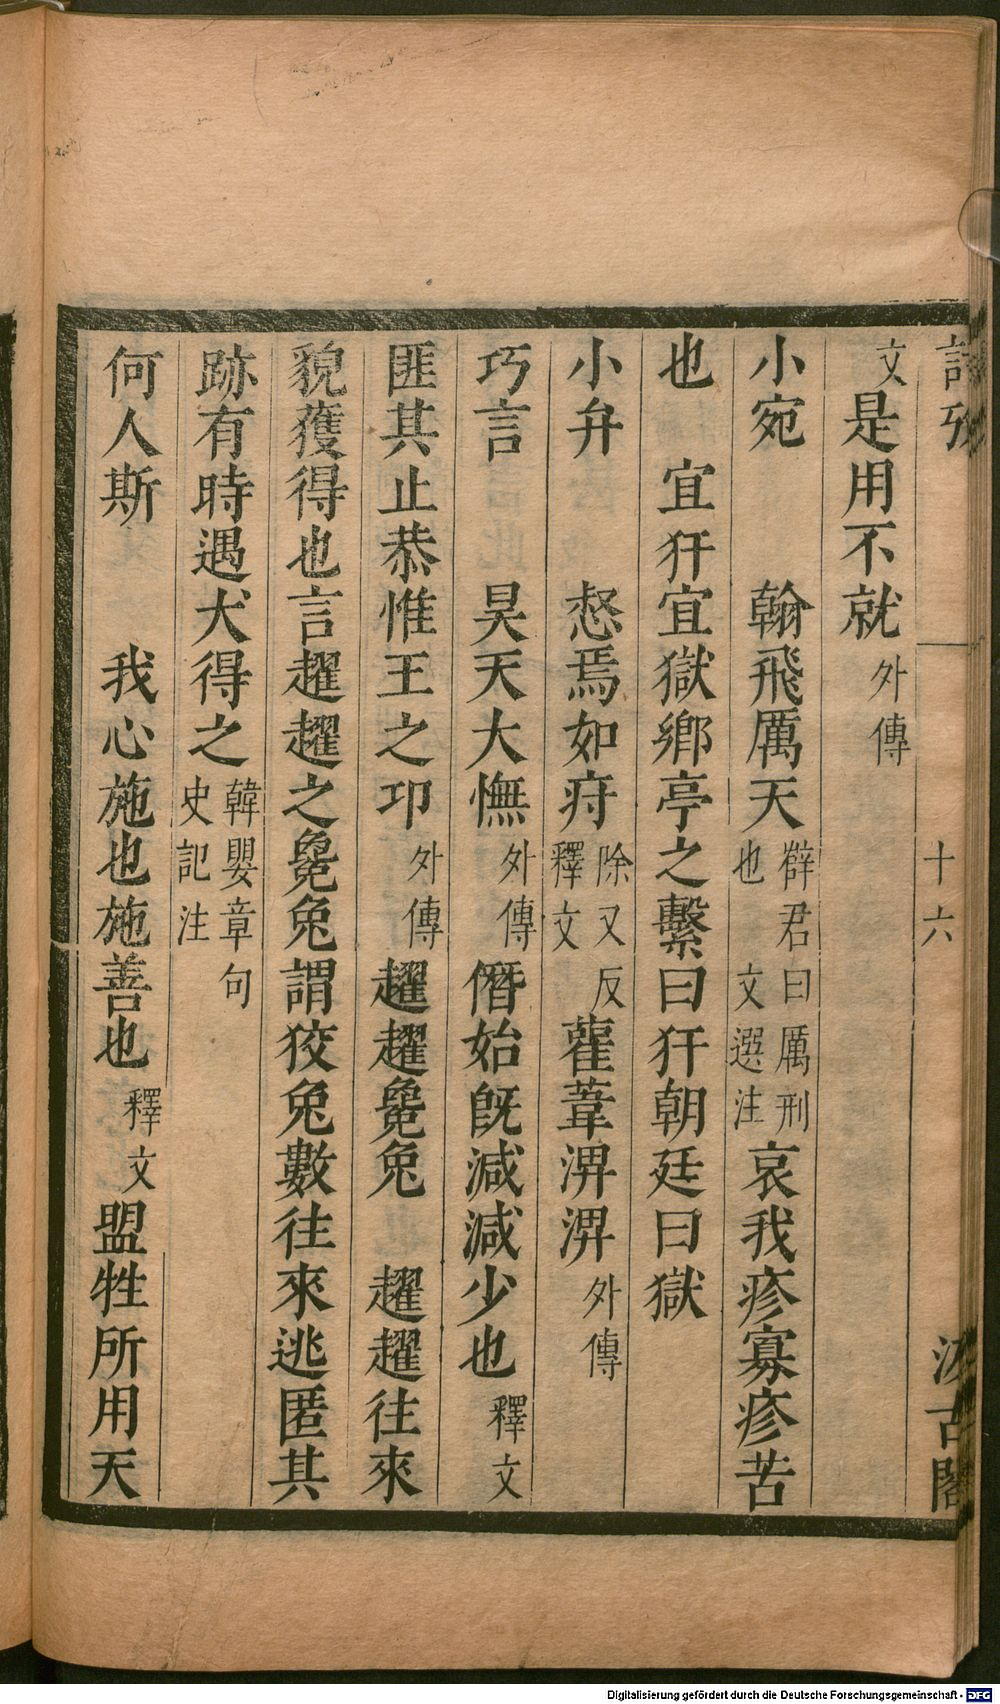 詩攷 十六 汲古閣
文是用不就外傳
小宛 翰飛厲天薛君曰厲附也文選注哀我疹寡疹苦
也 宜犴宜獄鄉亭之繫曰犴朝廷曰獄
小弁 惄焉如疛除又反釋文雚葦淠淠外傳
巧言 昊天大憮外傳僭始旣減減少也釋文
匪其止恭惟王之卭外傳趯趯毚兔 趯趯往來
貌獲得也言趯趯之毚兔謂狡兔數往來逃匿其
跡有時遇犬得之韓嬰章句史記注
何人斯 我心施也施善也釋文盟牲所用天
Digitalisierung gefördert durch die Deutsche Forschungsgemeinschaft - DFG